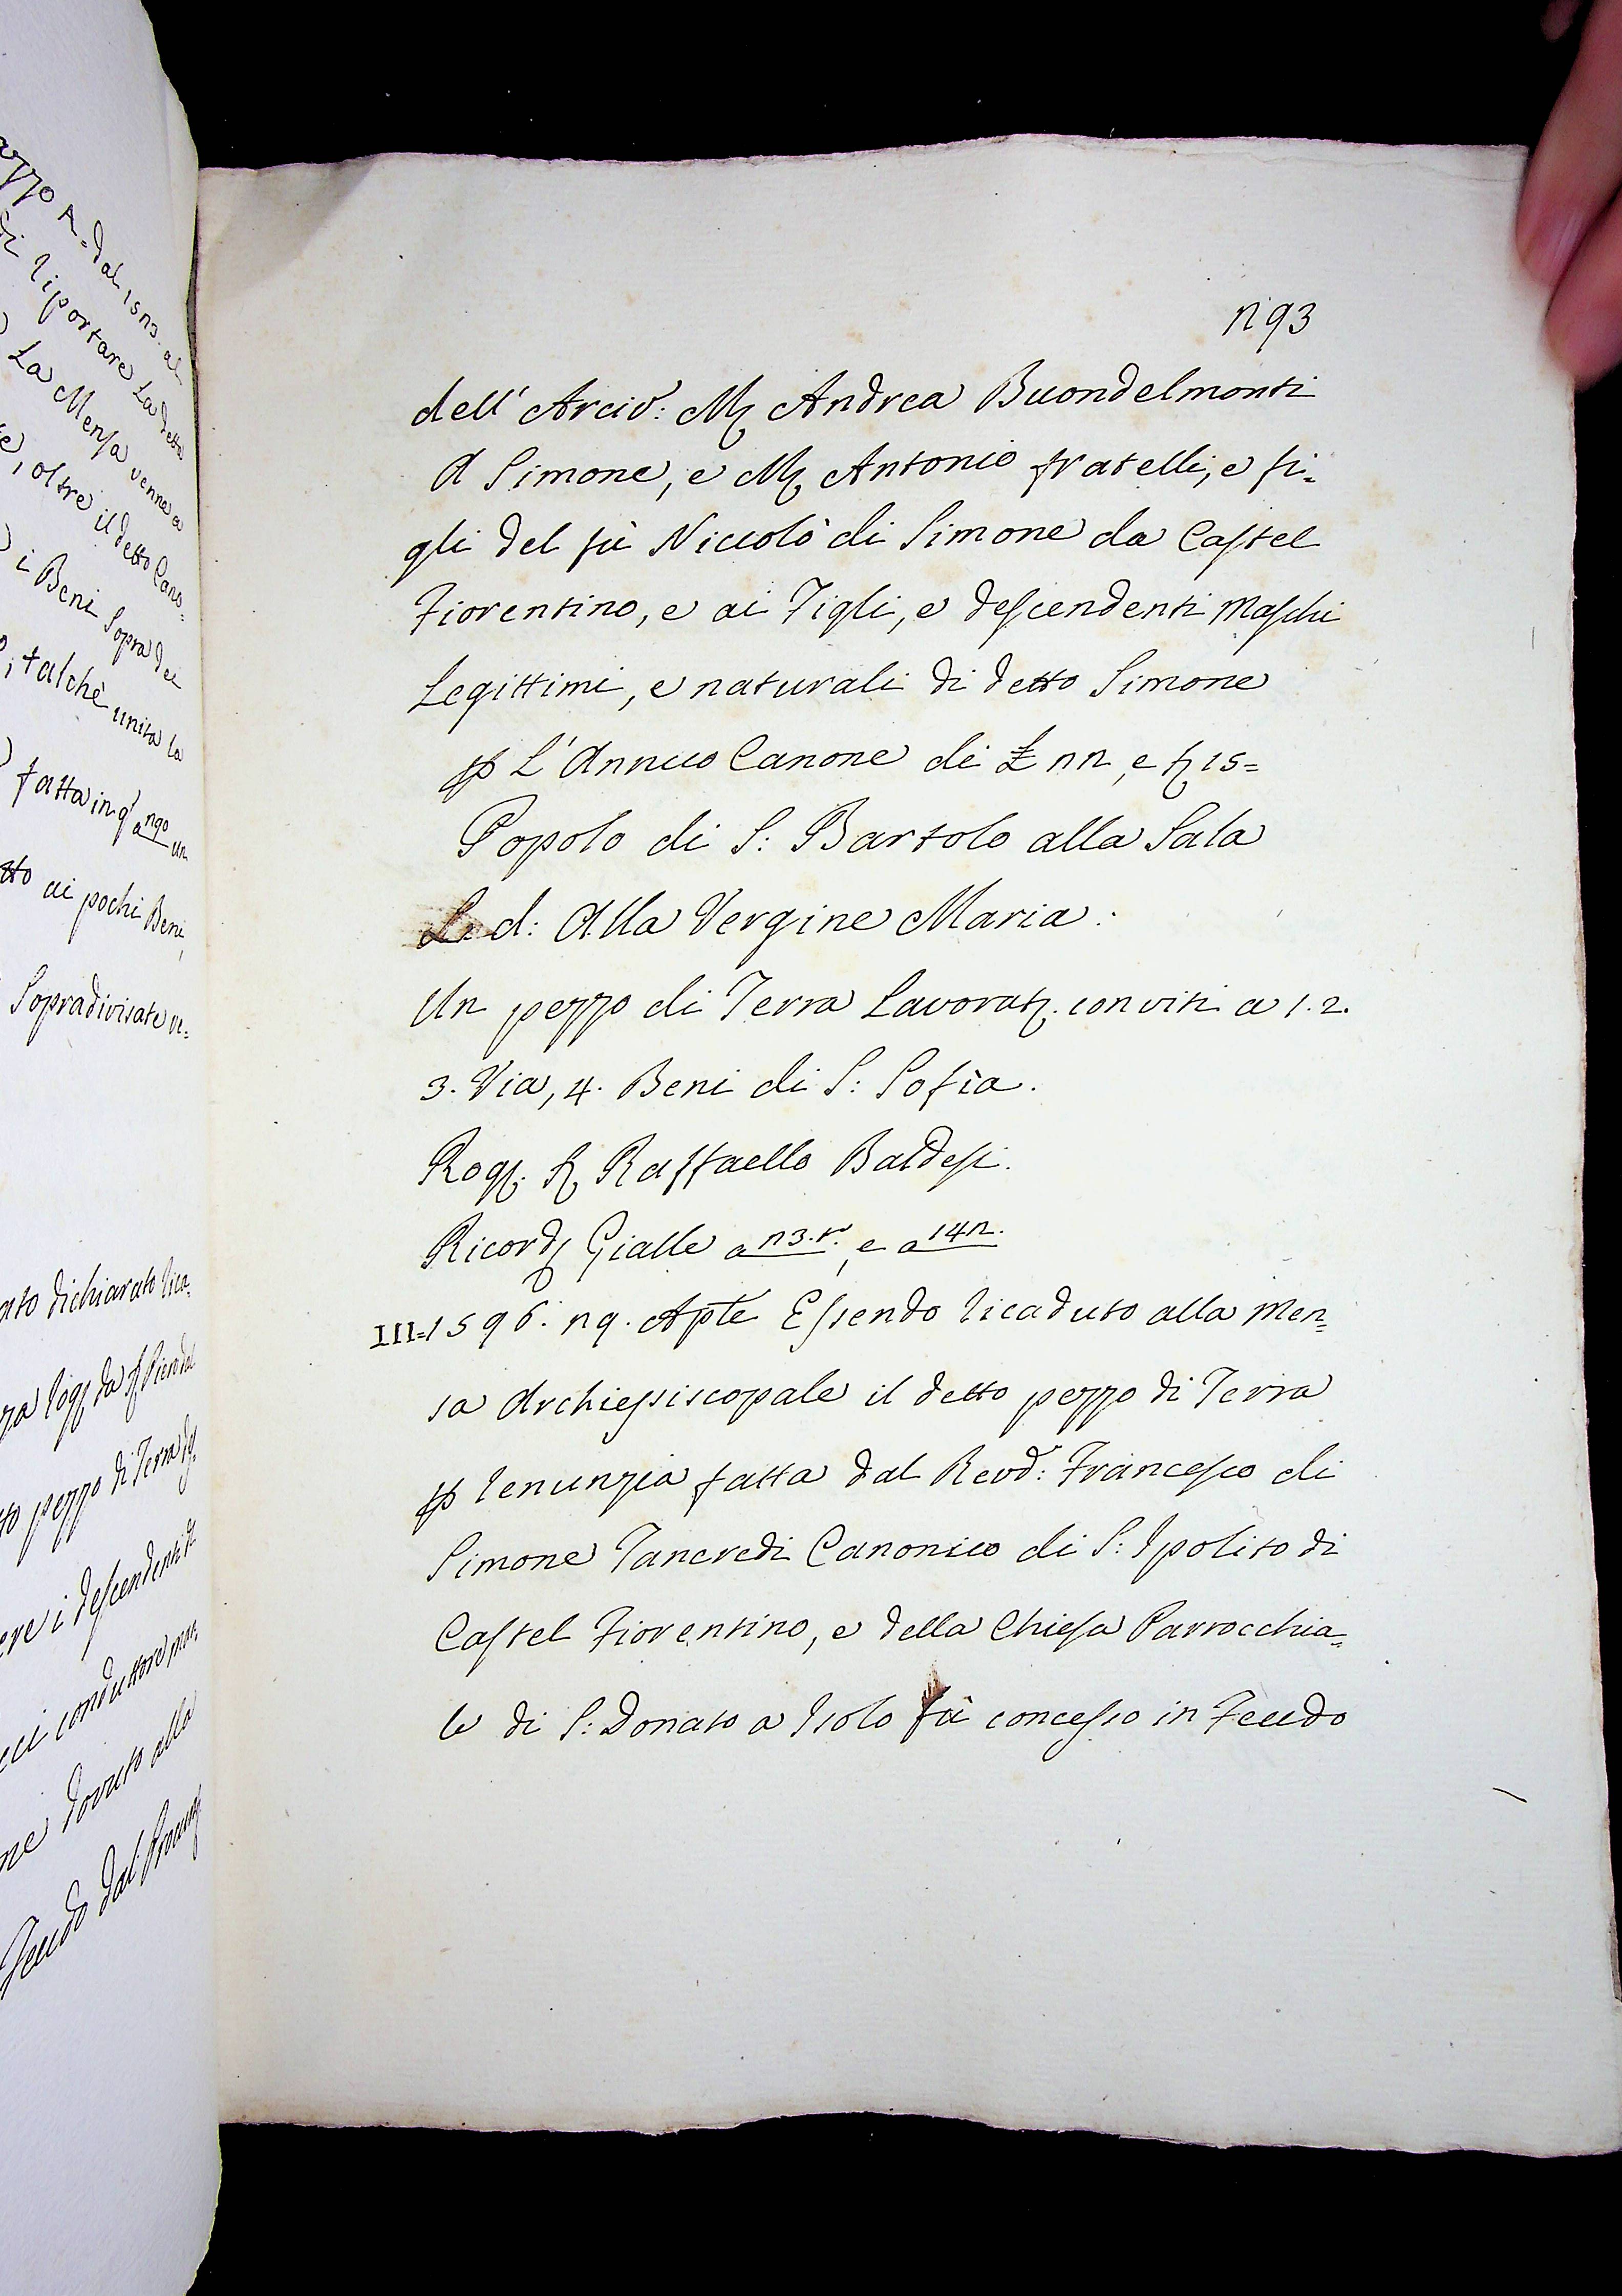 A. dal 1523. al
riportare la detta
La Mensa venne a
, oltre il detto Cano=
i Beni Sopra de
, talchè unita la
fatta in q.° a 290 un
ai pochi Beni,
Sopradivisate ve=
dichiarato rica=
pezzo di Terra
i descendenti
conduttore
dovuto alla
Feudo dal
293
dell' Arciv: M. Andrea Buondelmonti
A Simone, e M. Antonio fratelli, e fi=
gli del fù Niccolò di Simone da Castel
Fiorentino, e ai Figli, e descendenti Maschi
Legittimi, e naturali di detto Simone
p L'Annuo Canone di £ 22, e ß 15=
Popolo di S: Bartolo alla Sala
L. d: Alla Vergine Maria:
Un pezzo di Terra Lavorat. con viti a 1. 2.
3. Via, 4. Beni di S: Sofia.
Rog. S. Raffaello Baldesi.
Ricord. Gialle a 23.v., e a 142.
III=1596. 29. Aple Essendo ricaduto alla Men=
sa Archiepiscopale il detto pezzo di Terra
p renunzia fatta dal Revd: Francesco di
Simone Tancredi Canonico di S: Ipolito di
Castel Fiorentino, e della Chiesa Parrocchia=
le di S: Donato a Isolo fù concesso in Feudo